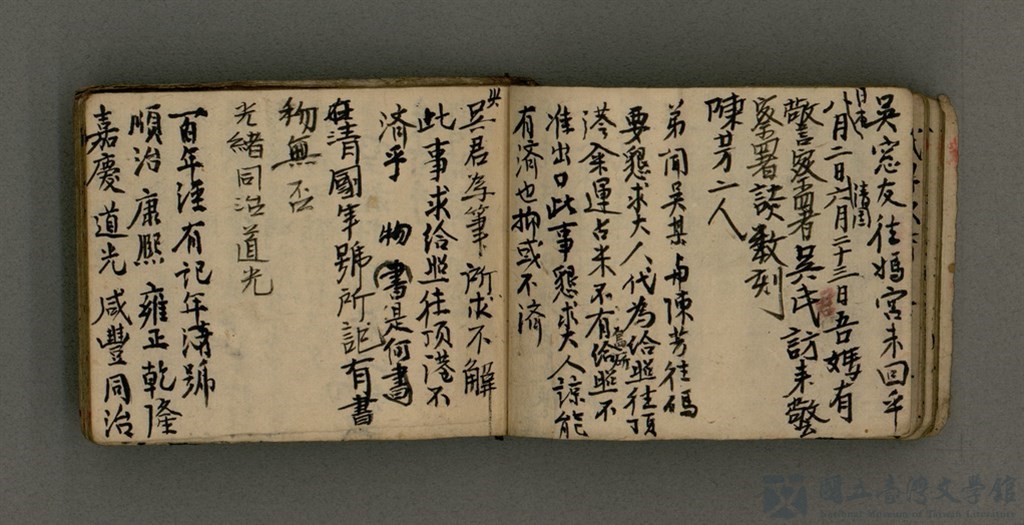 吳窓友往媽宮未回乎
日本
八月二日六月二十三日吾媽有
清国
警察署吳氏訪來警
察署談數刻
陳芳二人
弟聞吳某与陳芳往碼
要懇求大人代為給照往頂
港余運占米不有給照不
准出口此事懇求大人諒能
有濟也抑或不濟
吳君存筆所求不解
此事求給照往頂港不
濟乎 物書是何書
在清國年號所記有書
物無否
光緒同治道光
百年淮有記年清號
順治康熙雍正乾隆
嘉慶道光咸豐同治
國立臺灣文學館
National Museum of Taiwan Literature